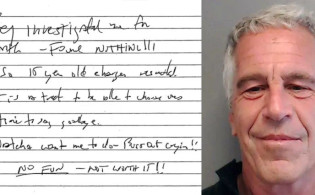 They investigated me for
month – FOUND NOTHING!!!
So 15 year old charges resulted
It is a treat to be able to choose ones
time to say goodbye.
Watcha want me to do – Burst out cryin!!
NO FUN – NOT WORTH IT!!